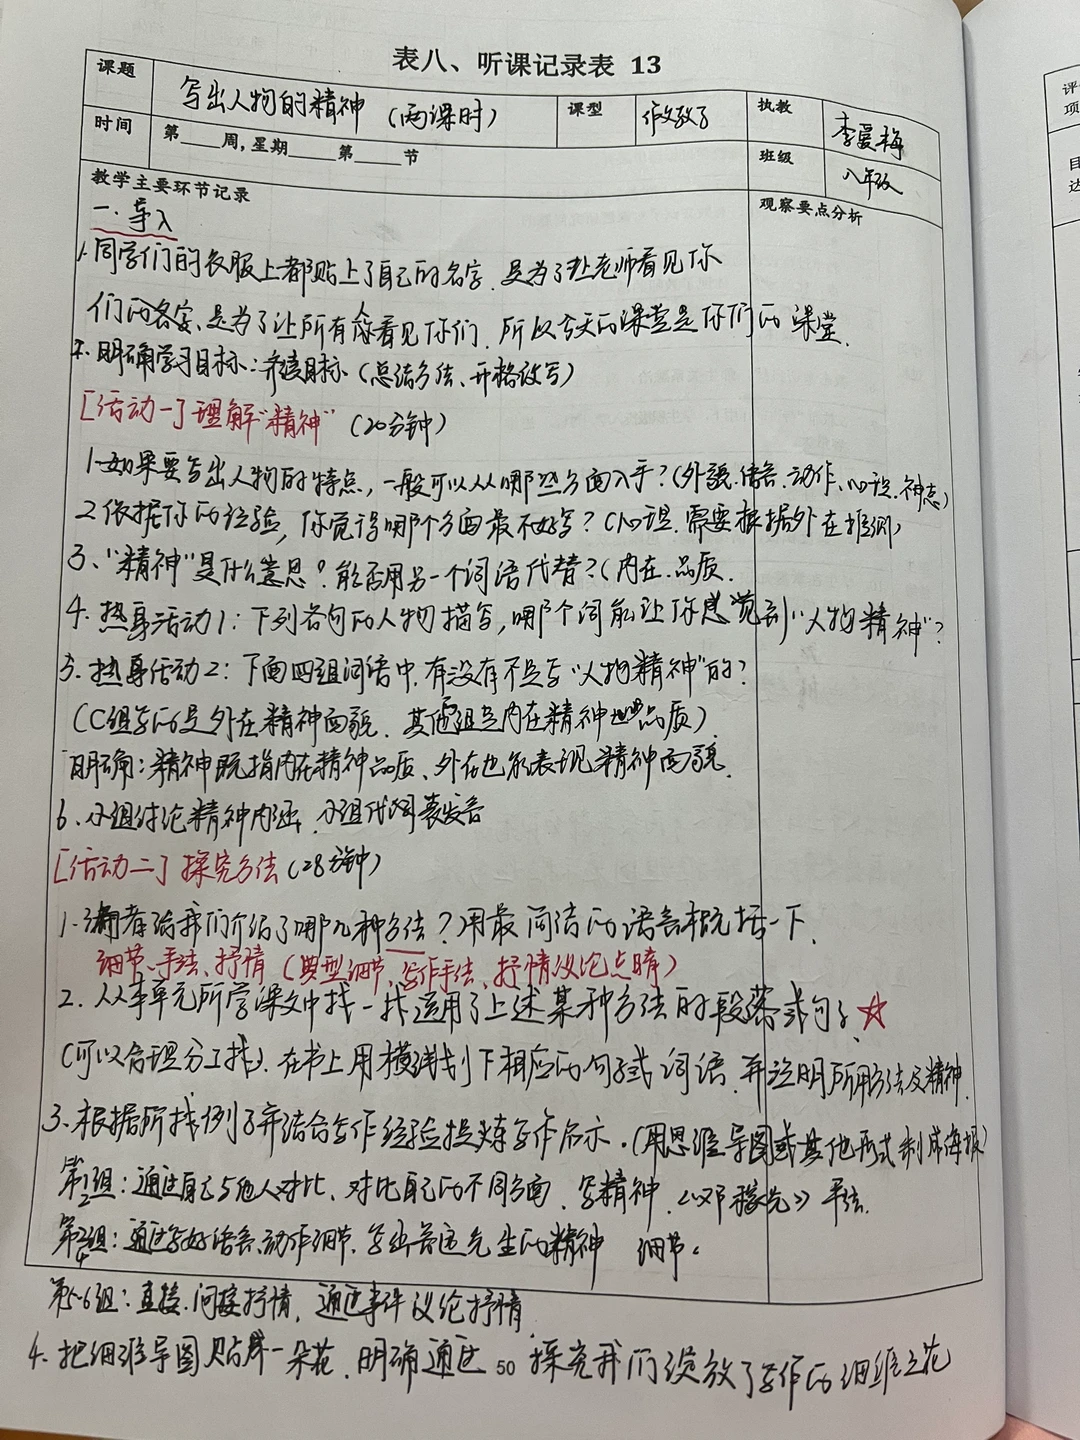 表八、听课记录表 13
课题 写出人物的精神（两课时） 课型 作文教学 执教 李爱梅
时间 第____周,星期____第____节 班级 八年级
教学主要环节记录 观察要点分析
一.导入
1.同学们的衣服上都贴上了自己的名字.是为了让老师看见你
们的名字、是为了让所有人看见你们.所以今天的课堂是你们的课堂.
2.明确学习目标:齐读目标(总结方法、升格改写)
[活动一]理解"精神"(20分钟)
1.如果要写出人物的特点,一般可以从哪些方面入手?(外貌.语言.动作、心理.神态)
2.依据你的经验,你觉得哪个方面最不好写?(心理.需要根据外在推测)
3、"精神"是什么意思?能否用另一个词语代替?(内在.品质.
4.热身活动1:下列各句的人物描写,哪个词能让你感觉到"人物精神"?
5.热身活动2:下面四组词语中.有没有不是写"人物精神"的?
(C组写的是外在精神面貌.其他组是内在精神品质)
明确:精神既指内在精神品质、外在也能表现精神面貌.
6.小组讨论精神内涵.小组代表发言
[活动二]探究方法(28分钟)
1.编者给我们介绍了哪几种方法?用最简洁的语言概括一下.
细节、手法、抒情(典型细节、写作手法、抒情议论点睛)
2.从本单元所学课文中找一找运用了上述某种方法的段落或句子.☆
(可以合理分工找).在书上用横线划下相应的句子或词语.并注明所用方法及精神.
3.根据所找例子并结合写作经验提炼写作启示.(用思维导图或其他形式制成海报)
第1 2组:通过自己与他人对比、对比自己的不同方面.写精神.《邓稼先》手法.
第3 4组:通过写好语言、动作细节.写出鲁迅先生的精神 细节.
第5-6组:直接.间接抒情,通过事件议论抒情.
4.把思维导图贴成一朵花.明确通过探究我们绽放了写作的思维之花
50